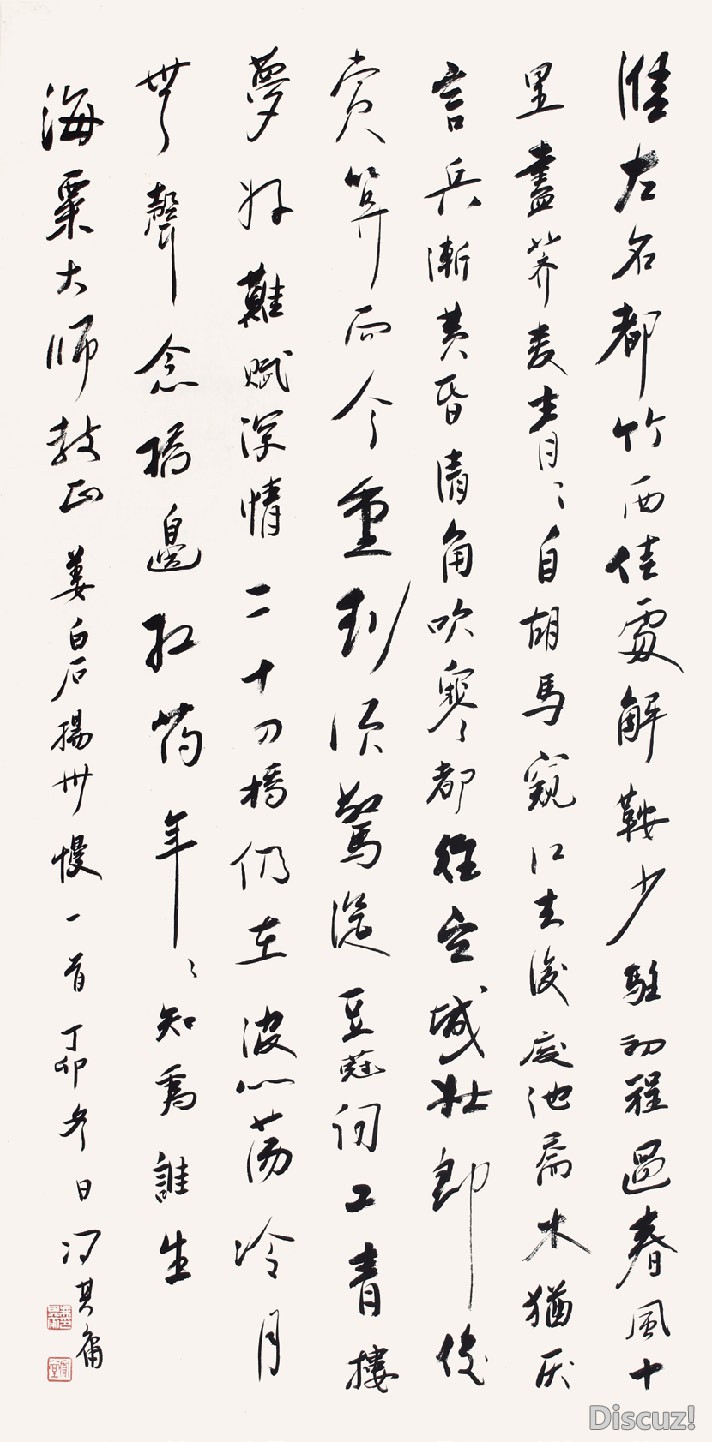 淮左名都竹西佳處解鞍少駐初程過春風十
里盡薺麥青〻自胡馬窺江去後廢池喬木猶厭
言兵漸黄昏清角吹寒都在空城杜郎俊
賞算而今重到須驚縱豆蔻詞工青樓
夢好難賦深情二十四橋仍在波心蕩冷月
無聲念橋邊紅药年〻知爲誰生
海粟大师教正 姜白石揚州慢一首 丁卯冬日 冯其庸
Discuz!